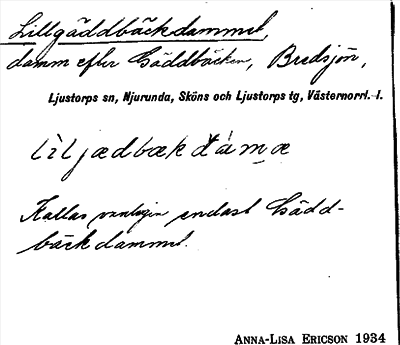 Lillgäddbäckdammet,
damm efter Gäddbäcken, Bredsjön,
Ljustorps sn, Njurunda, Sköns och Ljustorps tg, Västernorrl. l.
lìljædbækdám̬æ
Kallas vanligen endast Gädd-
bäckdammet.
ANNA-LISA ERICSON 1934